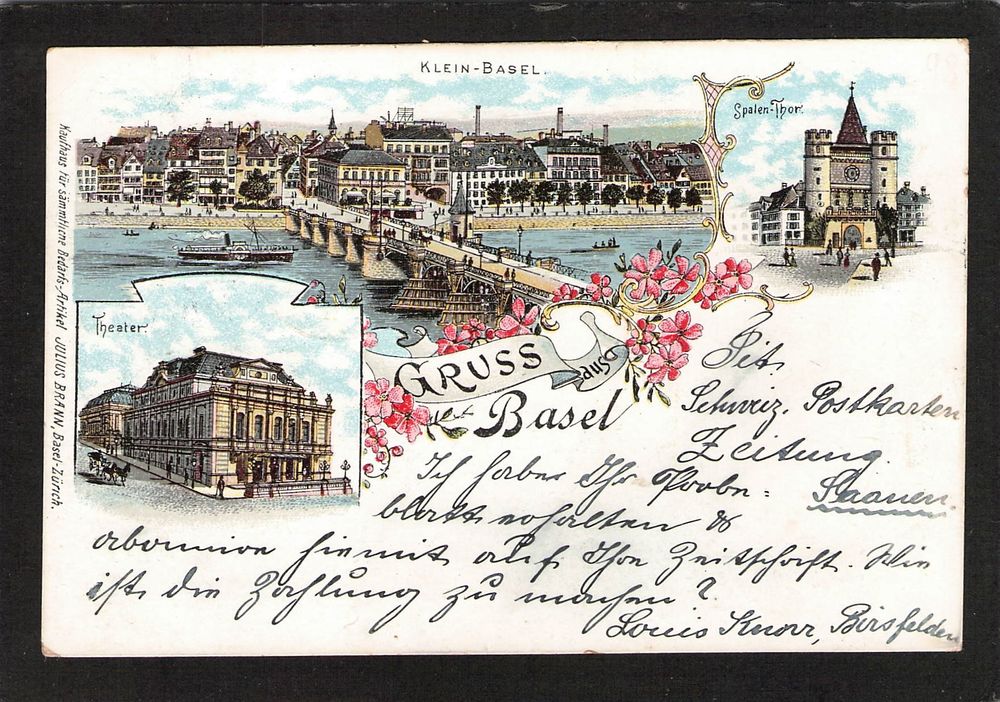 KLEIN-BASEL.
Spalen-Thor.
Theater
Kaufhaus für sämmtliche Bedarfs-Artikel JULIUS BRANN, Basel-Zürich.
GRUSS
aus
Basel
Tit.
Schweiz. Postkarten
Zeitung.
Saanen.
Ich habe Ihr Probe=
blatt erhalten &
abonnire hiemit auf Ihre Zeitschrift. Wie
ist die Zahlung zu machen?
Louis Knorr, Birsfelden